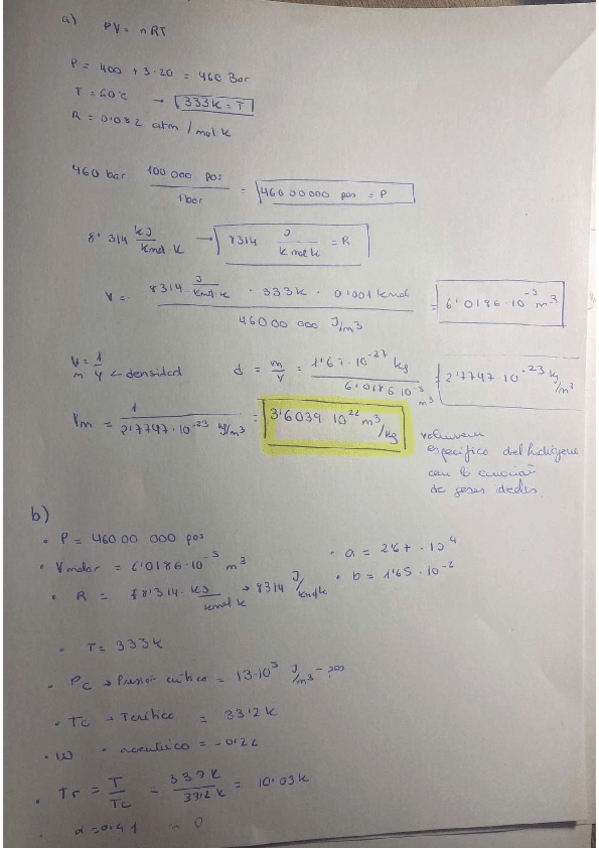 a) PV = nRT
P = 400 + 3·20 = 460 Bar
T = 60°C → 333K = T
R = 0'082 atm / mol·K
460 bar 100 000 pas / 1 bar = 46000000 pas = P
8'314 kJ / kmol·K → 8314 J / kmol K = R
V = 8314 J / kmol·K · 333K · 0'001 kmol / 46000 000 J/m³ = 6'0186·10⁻³ m³
V/m = 1/γ ← densidad d = m/v = 1'67·10⁻²⁷ kg / 6'0186·10⁻³ m³ = 2'7747·10⁻²³ kg/m³
Vm = 1 / 2'7747·10⁻²³ kg/m³ = 3'6039·10²² m³/kg
volumen
específico del hidógeno
con la ecuación
de gases
b)
· P = 46000 000 pas
· Vmolar = 6'0186·10⁻³ m³ · a = 2'67·10⁴
· R = 8'314· kJ / kmol K → 8314 J / kmol K · b = 1'65·10⁻²
· T = 333K
· Pc → Presión crítica = 13·10⁵ J/m³ - pas
· Tc → Tcrítico = 33'2 K
· W · acentrico = -0'22
· Tr = T / Tc = 333K / 33'2K = 10'03K
· α = 0'41